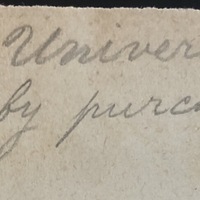 Univer
by purc